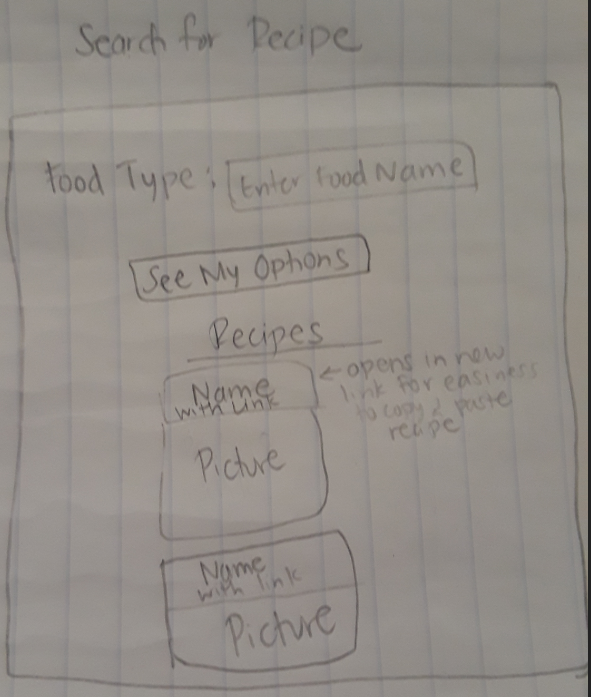 Search for Recipe
Food Type: Enter Food Name
See My Options
Recipes
Name
with Link
← opens in new
link for easiness
to copy & paste
recipe
Picture
Name
with link
Picture